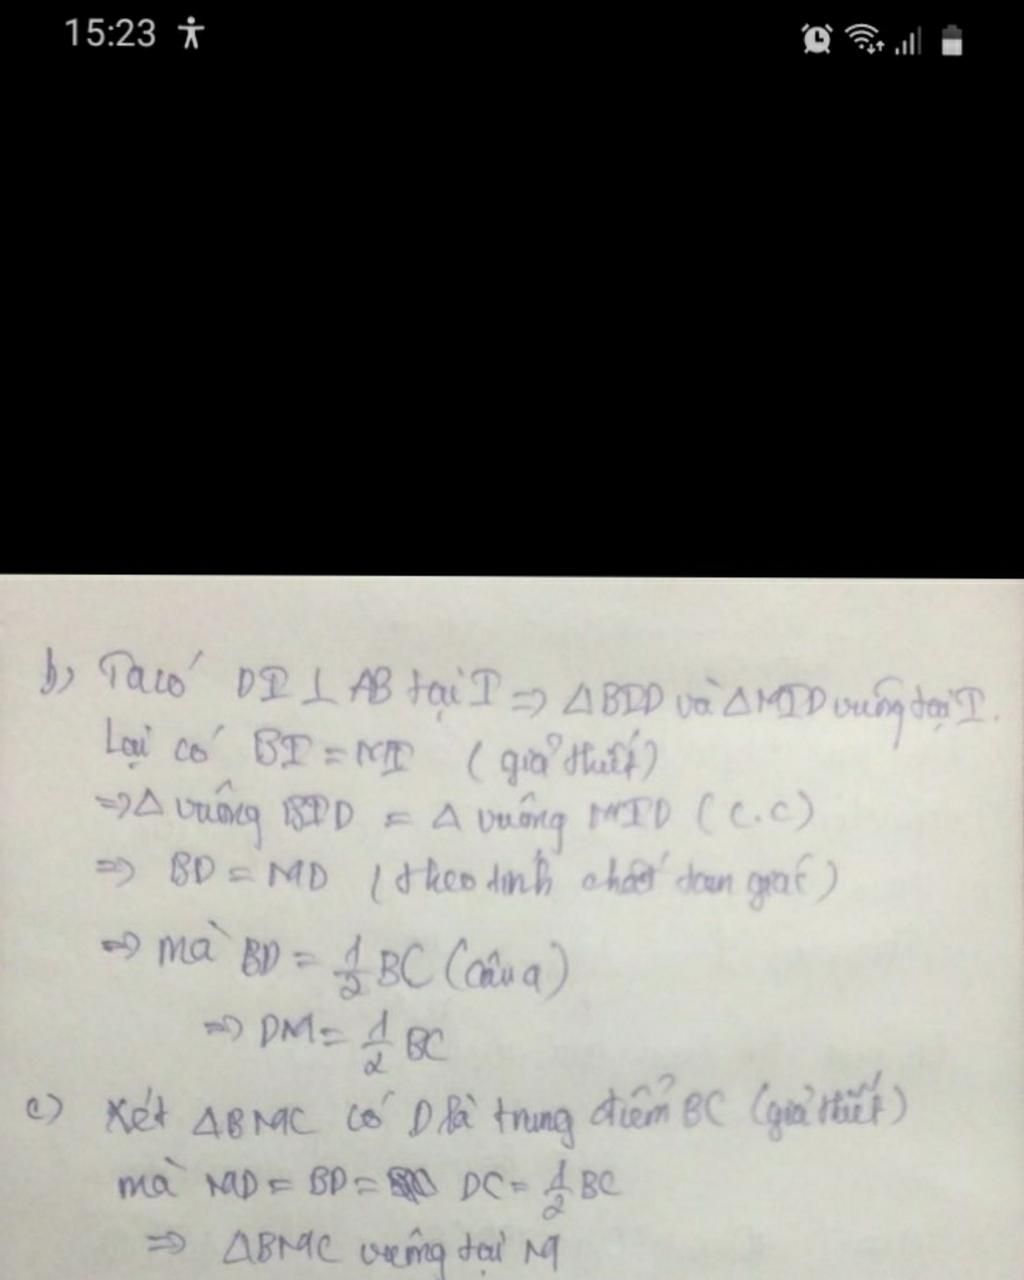 15:23
b) Ta có DI ⊥ AB tại I => △BID và △MID vuông tại I.
Lại có BI = MI (giả thiết)
=> △ vuông BID = △ vuông MID (c.c)
=> BD = MD (theo tính chất tam giác)
=> mà BD = 1/2 BC (câu a)
=> DM = 1/2 BC
c) Xét △BMC có D là trung điểm BC (giả thiết)
mà MD = BD = DC = 1/2 BC
=> △BMC vuông tại M